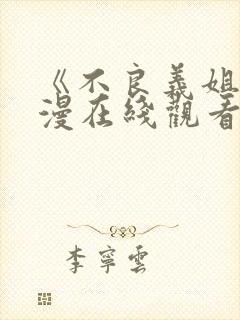 《不良義姐
漫在綫觀看
李寧雲